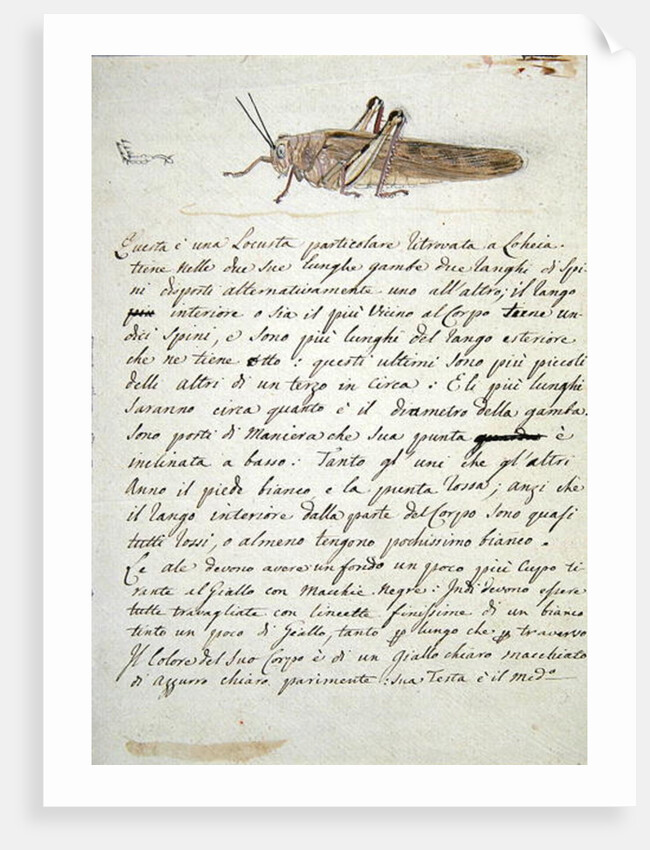 Questa è una Locusta particolare ritrovata a Loheia.
tiene nelle due sue lunghe gambe due ranghi di Spi-
ni disposti alternativamente uno all'altro; il rango
più interiore o sia il più Vicino al Corpo tiene un-
dici Spini, e sono più lunghi del rango esteriore
che ne tiene otto: questi ultimi sono più piccoli
delli altri di un terzo in circa: E li più lunghi
saranno circa quanto è il diametro della gamba.
sono posti di Maniera che sua punta è
inclinata a basso: Tanto gl'uni che gl'altri
Anno il piede bianco, e la punta rossa; anzi che
il rango interiore dalla parte del Corpo sono quasi
tutti rossi, o almeno tengono pochissimo bianco.
Le ale devono avere un fondo un poco più Cupo ti-
rante al Giallo con Macchie Negre: Indi devono essere
tutte travagliate con lineette finissime di un bianco
tinto un poco di Giallo, tanto p lungo che p traverso
Il Colore del suo Corpo è di un Giallo chiaro macchiato
di Azzurro chiaro parimente: sua Testa è il med.o